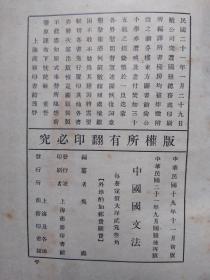 民國二十一年一月二十九日
敝公司突遭國難總務處印刷
所編譯所書棧房均被炸燬附
設之涵芬樓東方圖書館尚公
小學亦遭殃及盡付焚如三十
五載之經營隳於一旦迭蒙
各界慰問督望速圖恢復詞意懇
摯銜感何窮敝館雖處境艱困
不敢不勉為其難因將需用較
切各書先行覆印其他各書亦
將次第出版惟是圖版裝製不
能盡如原式事勢所限想荷
鑒原謹布下忱統祈 垂詧
上海商務印書館謹啟
版權所有翻印必究
中華民國十九年十一月初版
中華民國二十一年九月國難後第一版
中國國文法
每册定價大洋貳元
外埠酌加運費匯費
編纂者 吳
印刷者 上海 商務印書館
發行所 上海及各埠 商務印書館